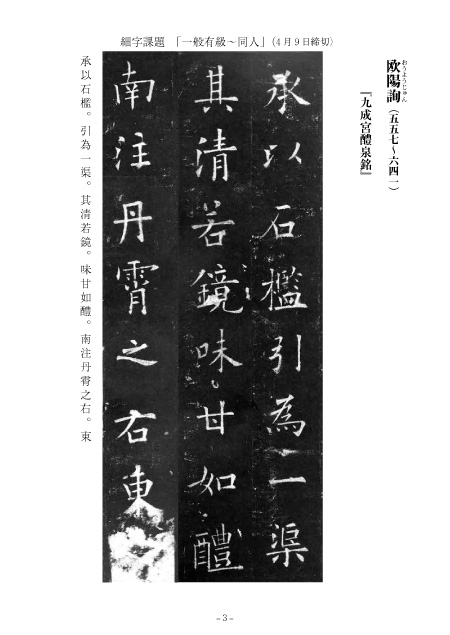 細字課題 「一般有級～同人」(4月9日締切)
欧陽詢(五五七～六四一)
おうようじゅん
『九成宮醴泉銘』
承以石檻引為一渠
其清若鏡味甘如醴
南注丹霄之右東
承以石檻。引為一渠。其清若鏡。味甘如醴。南注丹霄之右。東
- 3 -